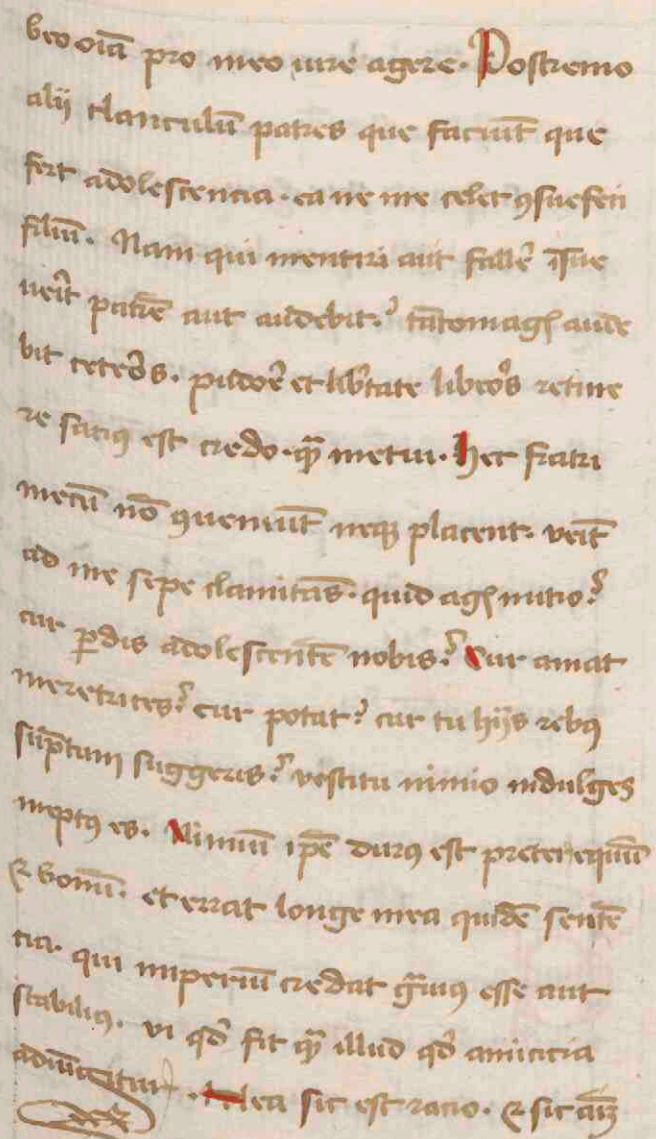 beo oīa pro meo iure agere. Postremo
alij clanculū patres que faciūt que
fert adolescencia. ea ne me celet ꝯsuefeci
filiū. Nam qui mentiri aut fallẽ īsue
ueīt patrē aut audebit.? tātomagꝭ aude
bit ceteros. pudorē et libtate liberos retine
re satiꝰ est credo. qᷓ metu. hec fratri
mecū nō ꝯueniūt neqꝫ placent. veīt
ad me sepe clamitās. quid agꝭ mitio?
cur ꝑdis adolescentē nobis? Cur amat
meretrices? cur potat? cur tu hijs rebꝰ
sūptum suggeris? vestitu nimio indulges
ineptꝰ es. Nimiū ipē durꝰ est preter equū
et bonū. et errat longe mea quidē sentē
cia. qui imperiū credat gᷓuiꝰ esse aut
stabiliꝰ. vi qđ fit qᷓ illud qđ amicicia
adiūgitur. Mea sic est racio. et sic aīꝫ